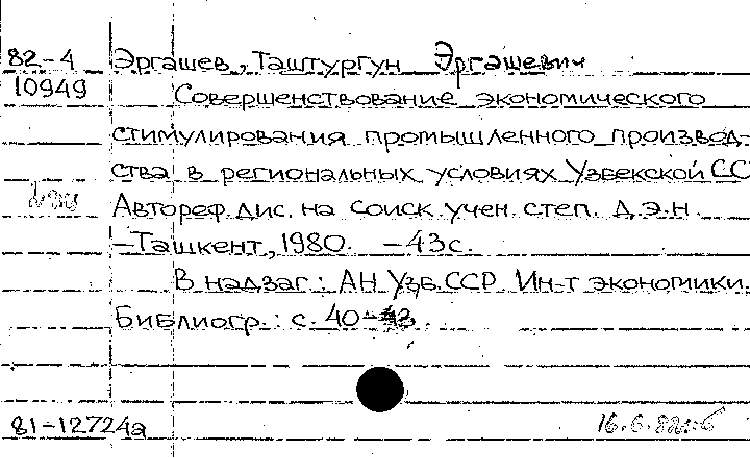 82-4 Эргашев, Таштургун Эргашевич
10949 Совершенствование экономического
стимулирования промышленного производ-
ства в региональных условиях Узбекской СС
Автореф. дис. на соиск. учен. степ. д.э.н.
-Ташкент, 1980. -43с.
В надзаг.: АН Узб.ССР. Ин-т экономики.
Библиогр.: с. 40-43.
81-12724а 16.6.82г.